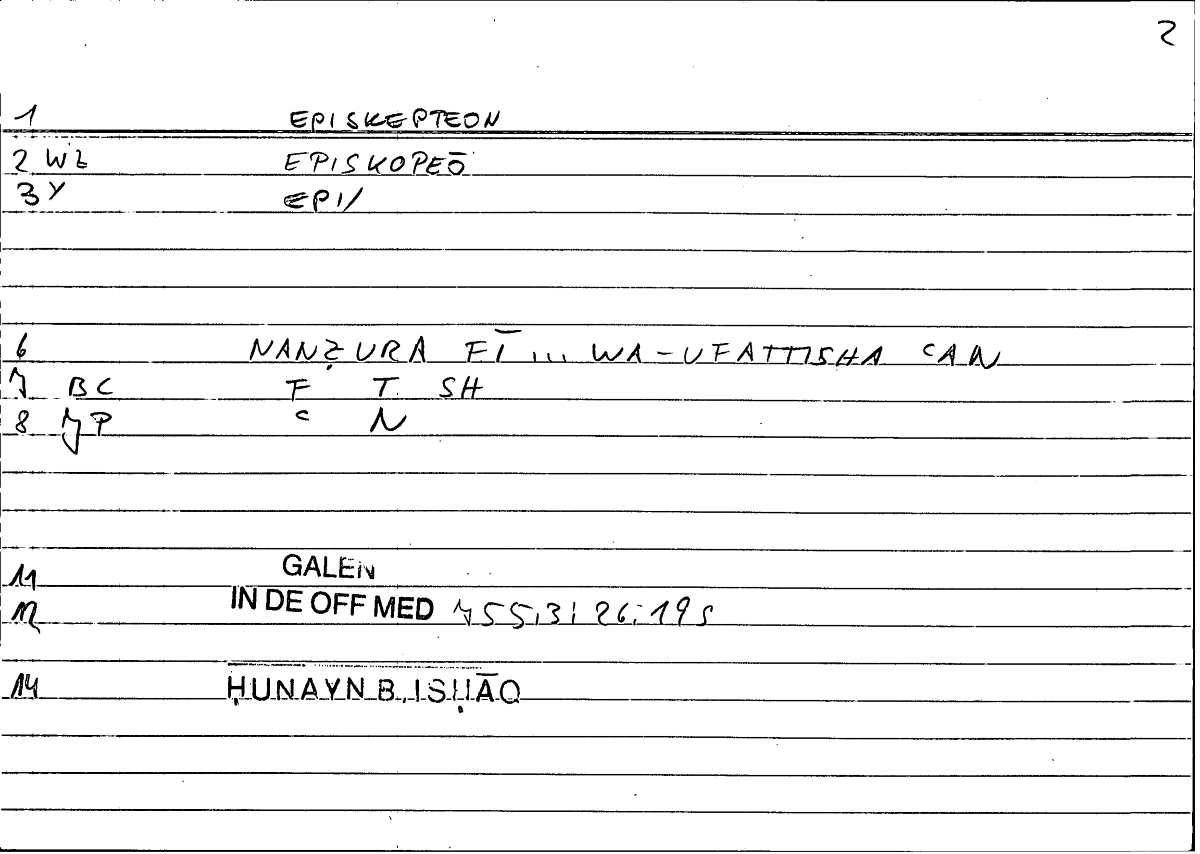 2
1 EPISKEPTEON
2 WZ EPISKOPEŌ
3 Y EPI/
6 NANẒURA FĪ ... WA-UFATTISHA ᶜAN
7 BC F T SH
8 JP ᶜ N
11 GALEN
12 IN DE OFF MED 755,3; 26:19s
14 ḤUNAYN B. ISḤĀQ